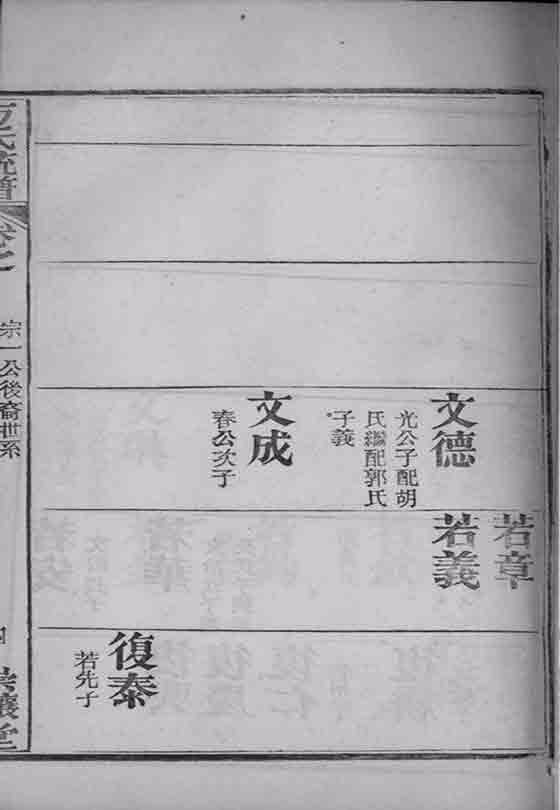 若章
文德
光公子配胡
氏繼配郭氏
子義
若義
文成
春公次子
復泰
若先子
宗一公後裔世系